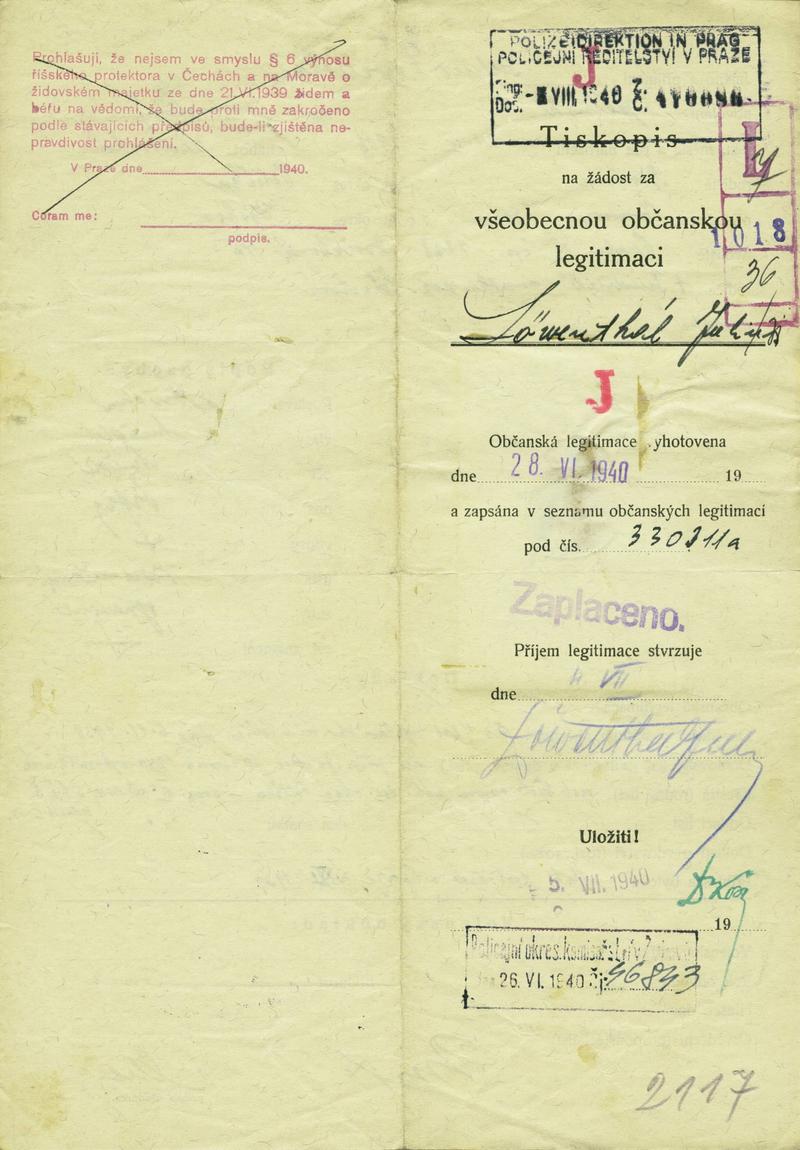 Prohlašuji, že nejsem ve smyslu § 6 výnosu
říšského protektora v Čechách a na Moravě o
židovském majetku ze dne 21.VI.1939 židem a
béřu na vědomí, že bude proti mně zakročeno
podle stávajících předpisů, bude-li zjištěna ne-
pravdivost prohlášení.
V Praze dne 1940.
Coram me:
podpis.
POLIZEIDIREKTION IN PRAG
POLICEJNÍ ŘEDITELSTVÍ V PRAZE
J
Eing.: Z.
Doš. VIII 1940 Č.
Tiskopis
L
na žádost za
všeobecnou občanskou
1018
legitimaci
36
Löwenthál
J
Občanská legitimace yhotovena
dne 28. VI. 1940 19
a zapsána v seznamu občanských legitimací
pod čís. 330211a
Zaplaceno.
Příjem legitimace stvrzuje
dne VII
Uložiti!
5. VII. 1940
19
Policejní okres.
26. VI. 1940 Čj: 46843
2117